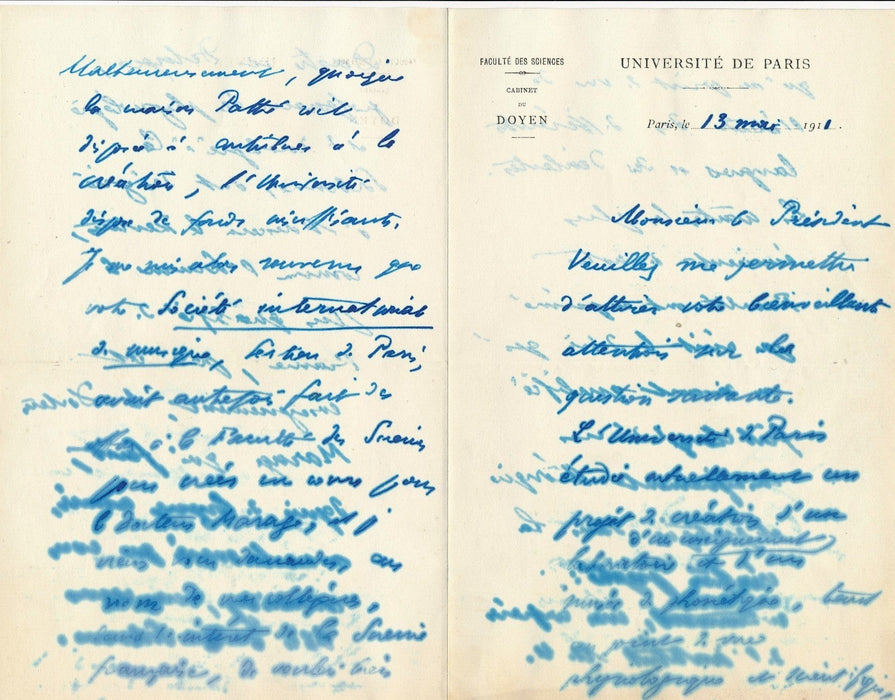 Malheureusement, quoique
la maison Pathé soit
disposée à contribuer à la
création, l'Université
dispose de fonds insuffisants.
Je me suis alors souvenu que
votre Société internationale
de musique, section de Paris,
avait autrefois fait des
à la Faculté des Sciences
pour créer un cours pour
le Docteur Marage, et je
viens vous demander, au
nom de nos collègues,
dans l'intérêt de la Science
française, de vouloir bien
FACULTÉ DES SCIENCES
CABINET
DU
DOYEN
UNIVERSITÉ DE PARIS
Paris, le 13 mai 1911.
Monsieur le Président
Veuillez me permettre
d'attirer votre bienveillante
attention sur la
question suivante.
L'Université de Paris
étudie actuellement un
projet de création d'un
d'un enseignement
laboratoire et d'un
de phonétique, tant
au point de vue
physiologique et scientifique